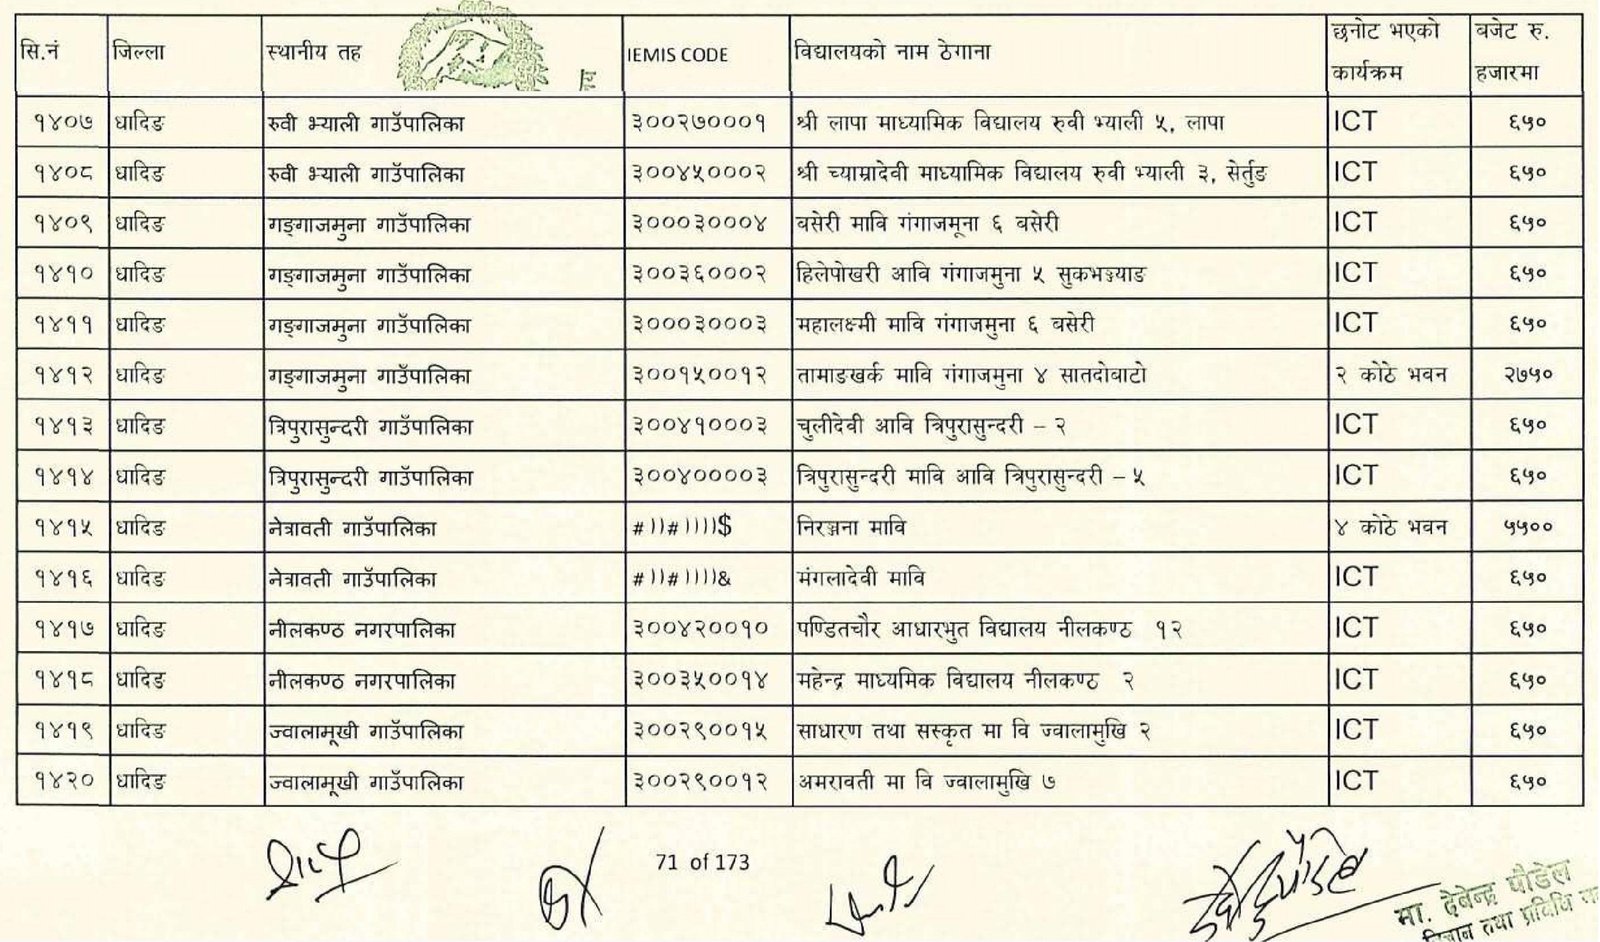 सि.नं जिल्ला स्थानीय तह IEMIS CODE विद्यालयको नाम ठेगाना छनोट भएको कार्यक्रम बजेट रु. हजारमा
१४०७ धादिङ रुवी भ्याली गाउँपालिका ३००२७०००१ श्री लापा माध्यामिक विद्यालय रुवी भ्याली ५, लापा ICT ६५०
१४०८ धादिङ रुवी भ्याली गाउँपालिका ३००४५०००२ श्री च्याम्रादेवी माध्यामिक विद्यालय रुवी भ्याली ३, सेर्तुङ ICT ६५०
१४०९ धादिङ गङ्गाजमुना गाउँपालिका ३०००३०००४ बसेरी मावि गंगाजमूना ६ बसेरी ICT ६५०
१४१० धादिङ गङ्गाजमुना गाउँपालिका ३००३६०००२ हिलेपोखरी आवि गंगाजमुना ५ सुकभञ्ज्याङ ICT ६५०
१४११ धादिङ गङ्गाजमुना गाउँपालिका ३०००३०००३ महालक्ष्मी मावि गंगाजमुना ६ बसेरी ICT ६५०
१४१२ धादिङ गङ्गाजमुना गाउँपालिका ३००१५००१२ तामाङखर्क मावि गंगाजमुना ४ सातदोबाटो २ कोठे भवन २७५०
१४१३ धादिङ त्रिपुरासुन्दरी गाउँपालिका ३००४१०००३ चुलीदेवी आवि त्रिपुरासुन्दरी – २ ICT ६५०
१४१४ धादिङ त्रिपुरासुन्दरी गाउँपालिका ३००४००००३ त्रिपुरासुन्दरी मावि आवि त्रिपुरासुन्दरी – ५ ICT ६५०
१४१५ धादिङ नेत्रावती गाउँपालिका #))#))))$ निरञ्जना मावि ४ कोठे भवन ५५००
१४१६ धादिङ नेत्रावती गाउँपालिका #))#))))& मंगलादेवी मावि ICT ६५०
१४१७ धादिङ नीलकण्ठ नगरपालिका ३००४२००१० पण्डितचौर आधारभुत विद्यालय नीलकण्ठ १२ ICT ६५०
१४१८ धादिङ नीलकण्ठ नगरपालिका ३००३५००१४ महेन्द्र माध्यमिक विद्यालय नीलकण्ठ २ ICT ६५०
१४१९ धादिङ ज्वालामूखी गाउँपालिका ३००२९००१५ साधारण तथा सस्कृत मा वि ज्वालामुखि २ ICT ६५०
१४२० धादिङ ज्वालामूखी गाउँपालिका ३००२९००१२ अमरावती मा वि ज्वालामुखि ७ ICT ६५०
71 of 173
मा. देवेन्द्र पौडेल
तथा प्रविधि